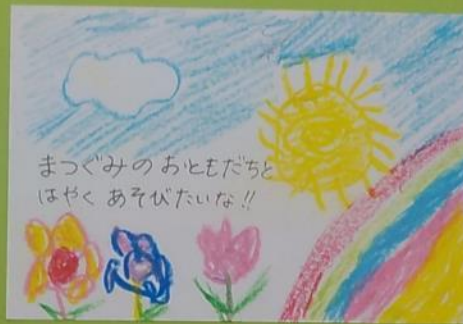 まつぐみの おともだちと
はやく あそびたいな!!